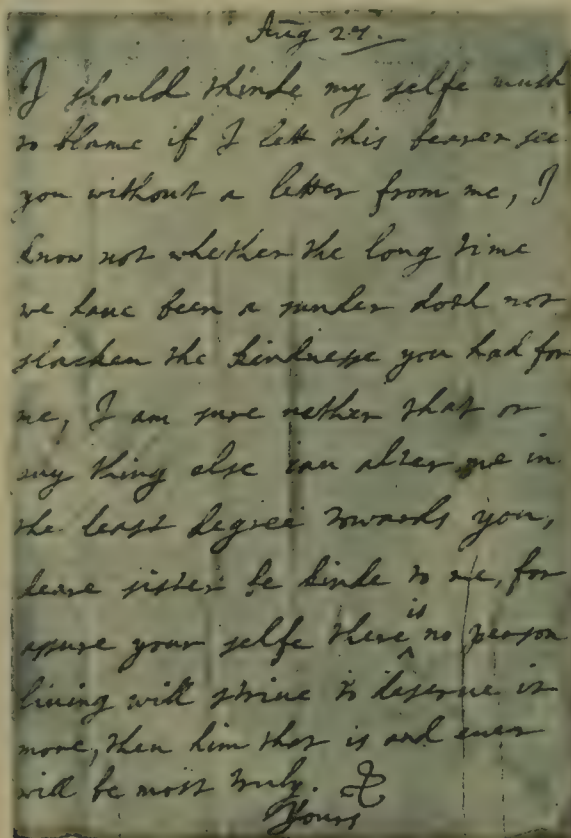 Aug 27.
I should thinke my selfe much
to blame if I lett this bearer see
you without a letter from me, I
know not whether the long time
we haue been a sunder doth not
slacken the kindnesse you had for
me, I am sure nether that or
any thing else can alter me in
the least degree towards you,
deare sister be kinde to me, for
assure your selfe there is no person
liuing will striue to deserue it
more, then him that is and euer
will be most truly.
Yours